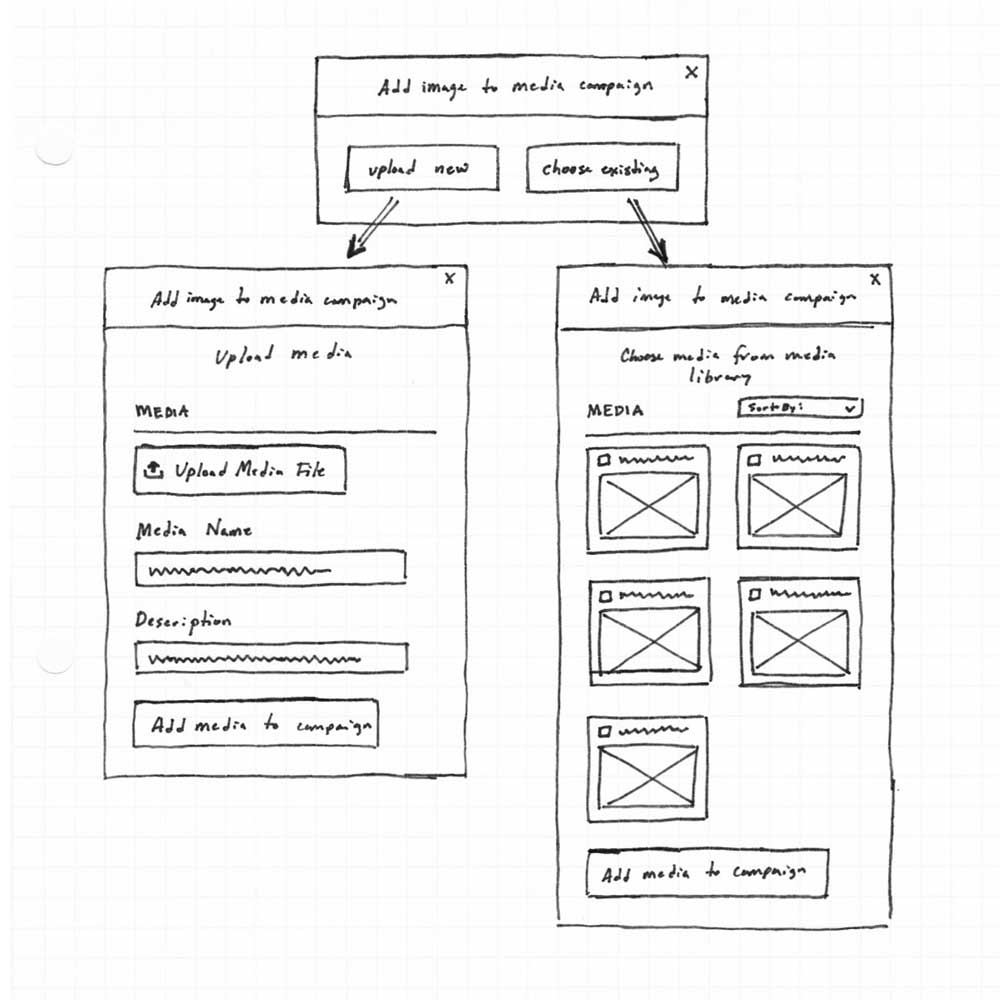 Add image to media campaign X
upload new
choose existing
Add image to media campaign X
Upload media
MEDIA
Upload Media File
Media Name
Description
Add media to campaign
Add image to media campaign X
Choose media from media
library
MEDIA
Sort By:
Add media to campaign